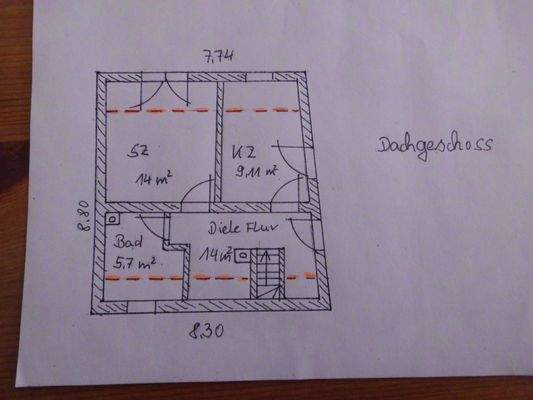 7,74
Dachgeschoss
SZ
14 m²
KZ
9,11 m²
8,80
Diele Flur
14 m²
Bad
5.7 m²
8,30